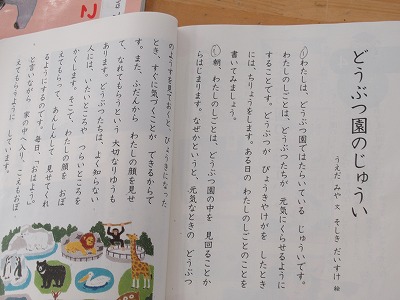 どうぶつ園のじゅうい
うえだ みや 文 そしき だいすけ 絵
①わたしは、どうぶつ園ではたらいている じゅういです。
わたしのしごとは、どうぶつたちが 元気にくらせるように
することです。どうぶつが びょうきやけがを したとき
には、ちりょうをします。ある日の わたしのしごとのことを
書いてみましょう。
②朝、わたしのしごとは、どうぶつ園の中を 見回ることか
らはじまります。なぜかというと、元気なときの どうぶつ
のようすを見ておくと、びょうきになった
とき、すぐに気づくことが できるからで
す。また、ふだんから わたしの顔を見せ
て、なれてもらうという 大切なりゆうも
あります。どうぶつたちは、よく知らない
人には、いたいところや つらいところを
かくします。そこで、わたしの顔を おぼ
えてもらって、あんしんして 見せてくれ
るようにするのです。毎日、「おはよう。」
と言いながら 家の中へ入り、こえもおぼ
えてもらうように しています。